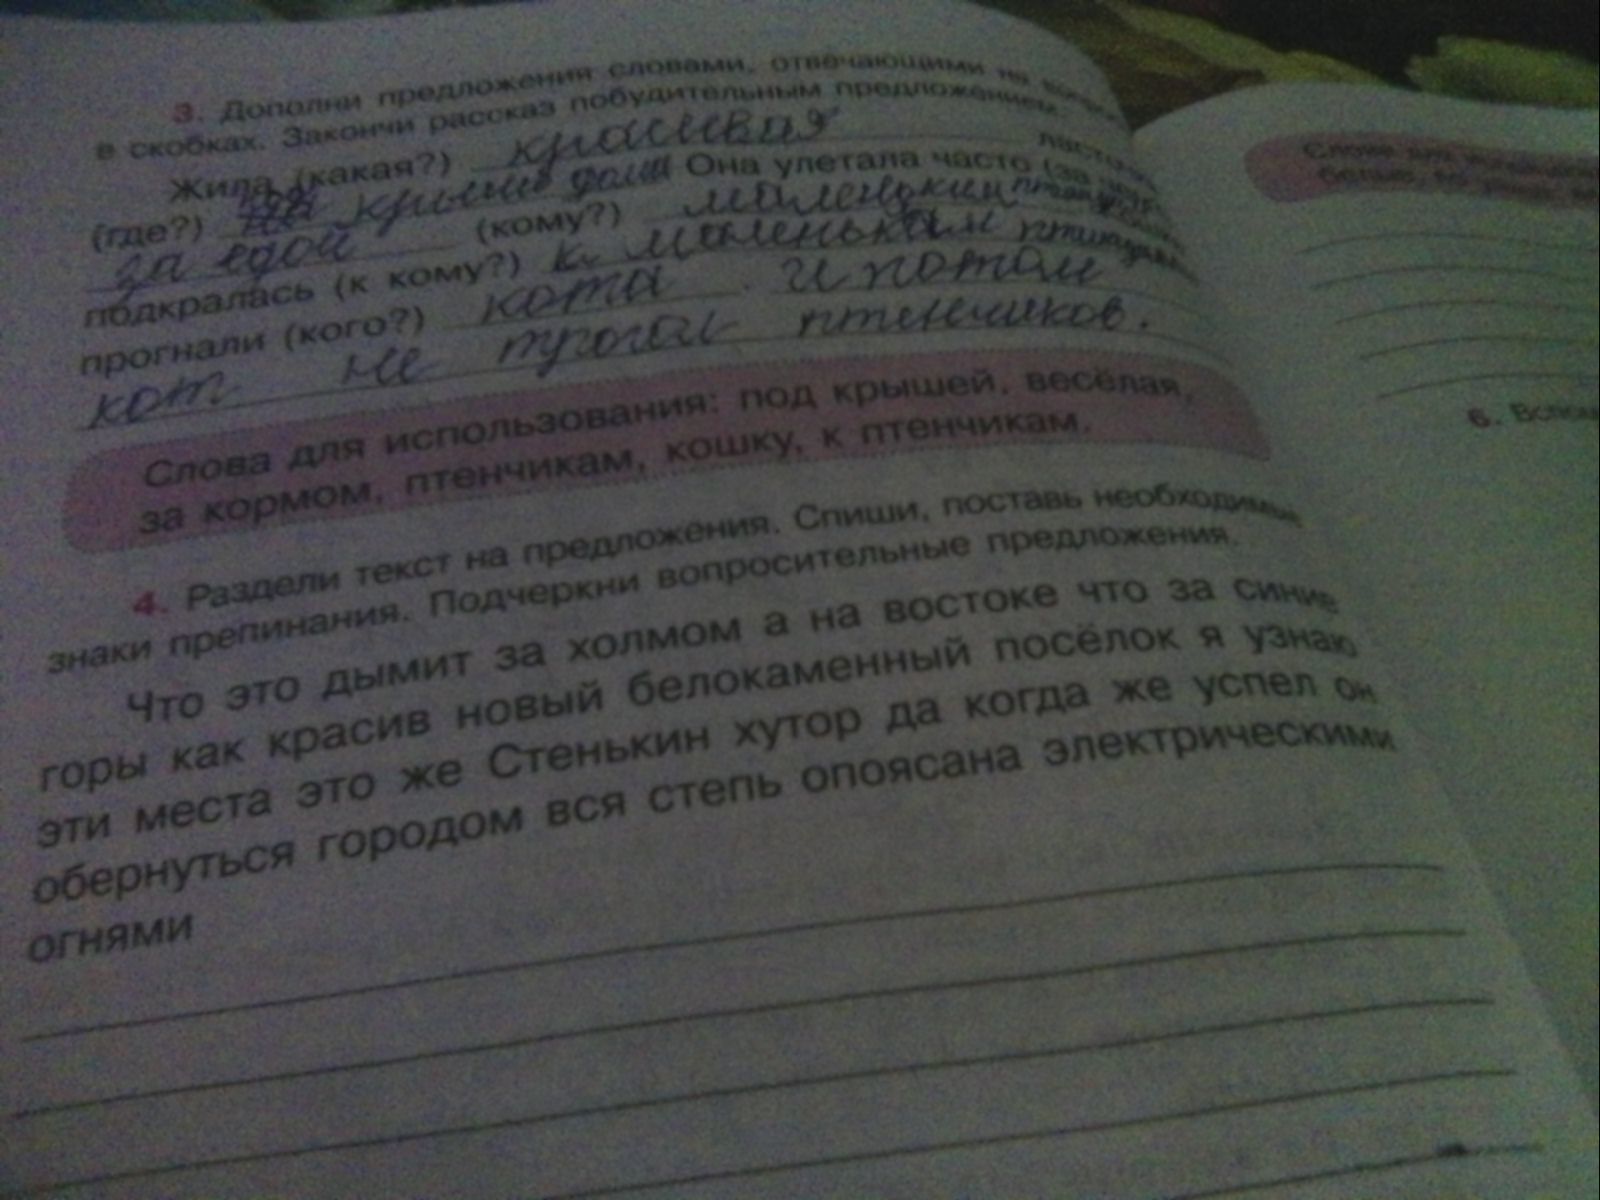 3. Дополни предложения словами, отвечающими на
в скобках. Закончи рассказ побудительным предложением.
Жила (какая?) красивая
(где?) на крыше дома Она улетала часто (за
за едой (кому?) маленьким
подкралась (к кому?) к маленьким птенчикам
прогнали (кого?) кота . и потом
кот не трогал птенчиков.
Слова для использования: под крышей, весёлая,
за кормом, птенчикам, кошку, к птенчикам.
4. Раздели текст на предложения. Спиши, поставь необходимые
знаки препинания. Подчеркни вопросительные предложения.
Что это дымит за холмом а на востоке что за синие
горы как красив новый белокаменный посёлок я узнаю
эти места это же Стенькин хутор да когда же успел он
обернуться городом вся степь опоясана электрическими
огнями
6.